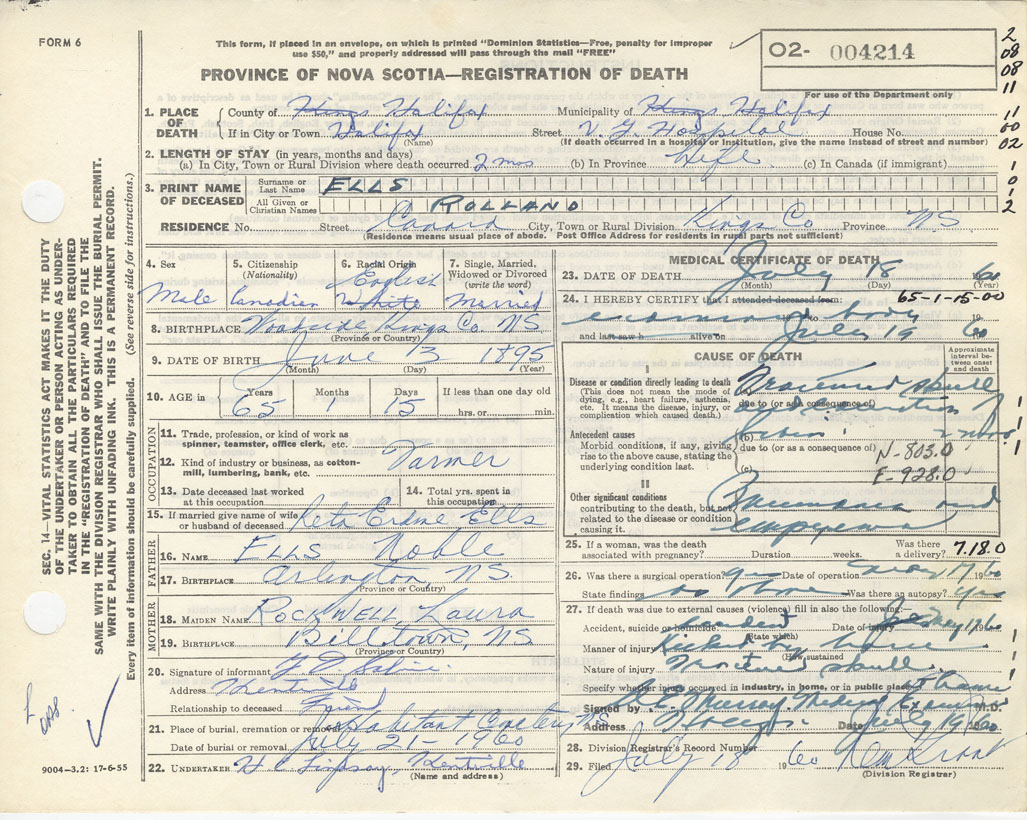 FORM 6
This form, if placed in an envelope, on which is printed "Dominion Statistics—Free, penalty for improper
use $50," and properly addressed will pass through the mail "FREE"
PROVINCE OF NOVA SCOTIA—REGISTRATION OF DEATH
02- 004214
For use of the Department only
2
08
08
11
11
00
02
1
0
1
2
1. PLACE OF DEATH
County of Kings Halifax Municipality of Kings Halifax
If in City or Town Halifax Street V. G. Hospital House No.
(Name) (If death occurred in a hospital or institution, give the name instead of street and number)
2. LENGTH OF STAY (in years, months and days)
(a) In City, Town or Rural Division where death occurred 2 mos (b) In Province Life (c) In Canada (if immigrant)
3. PRINT NAME OF DECEASED
Surname or Last Name ELLS
All Given or Christian Names ROLLAND
RESIDENCE No. Street Canard City, Town or Rural Division Kings Co Province NS
(Residence means usual place of abode. Post Office Address for residents in rural parts not sufficient)
4. Sex Male
5. Citizenship (Nationality) Canadian
6. Racial Origin English White
7. Single, Married, Widowed or Divorced (write the word) Married
8. BIRTHPLACE Woodside Kings Co. NS
(Province or Country)
9. DATE OF BIRTH June 3 1895
(Month) (Day) (Year)
10. AGE in Years 65 Months 1 Days 15 If less than one day old hrs. or min.
OCCUPATION
11. Trade, profession, or kind of work as spinner, teamster, office clerk, etc.
12. Kind of industry or business, as cotton-mill, lumbering, bank, etc. Farmer
13. Date deceased last worked at this occupation
14. Total yrs. spent in this occupation
15. If married give name of wife or husband of deceased Reta Ells
FATHER
16. NAME ELLS Noble
17. BIRTHPLACE Arlington, NS.
(Province or Country)
MOTHER
18. MAIDEN NAME ROCKWELL Laura
19. BIRTHPLACE Billtown, NS
(Province or Country)
20. Signature of informant
Address Kentville
Relationship to deceased Friend
21. Place of burial, cremation or removal Habitant Cemetery NS
Date of burial or removal July 21 - 1960
22. UNDERTAKER Kentville
(Name and address)
MEDICAL CERTIFICATE OF DEATH
23. DATE OF DEATH July 18 60
(Month) (Day) (Year)
24. I HEREBY CERTIFY that I attended deceased from: 65-1-15-00
examined body to 19
and last saw h alive on July 19 60
CAUSE OF DEATH
Approximate interval between onset and death
I
Disease or condition directly leading to death
(This does not mean the mode of dying, e.g., heart failure, asthenia, etc. It means the disease, injury, or complication which caused death.)
Fractured skull
due to (or as a consequence of)
Antecedent causes
Morbid conditions, if any, giving rise to the above cause, stating the underlying condition last.
(b)
due to (or as a consequence of)
(c)
N-803.0
E-928.0
II
Other significant conditions
contributing to the death, but not related to the disease or condition causing it.
Pneumonia and
empyema
25. If a woman, was the death associated with pregnancy? Duration weeks. Was there a delivery? 7.18.0
26. Was there a surgical operation? yes Date of operation May 17 1960
State findings as above Was there an autopsy? yes
27. If death was due to external causes (violence) fill in also the following:—
Accident, suicide or homicide. accident Date of injury May 1960
(State which)
Manner of injury Kicked by
(How sustained
Nature of injury Fractured skull
Specify whether injury occurred in industry, in home, or in public place at home
Signed by Murray Medical Examiner M.D.
Address Date July 19 1960
28. Division Registrar's Record Number
29. Filed July 18 1960
(Division Registrar)
SEC. 14—VITAL STATISTICS ACT MAKES IT THE DUTY
OF THE UNDERTAKER OR PERSON ACTING AS UNDER-
TAKER TO OBTAIN ALL THE PARTICULARS REQUIRED
IN THE "REGISTRATION OF DEATH" AND TO FILE THE
SAME WITH THE DIVISION REGISTRAR WHO SHALL ISSUE THE BURIAL PERMIT.
WRITE PLAINLY WITH UNFADING INK. THIS IS A PERMANENT RECORD.
Every item of information should be carefully supplied. (See reverse side for instructions.)
9004-3.2: 17-6-55